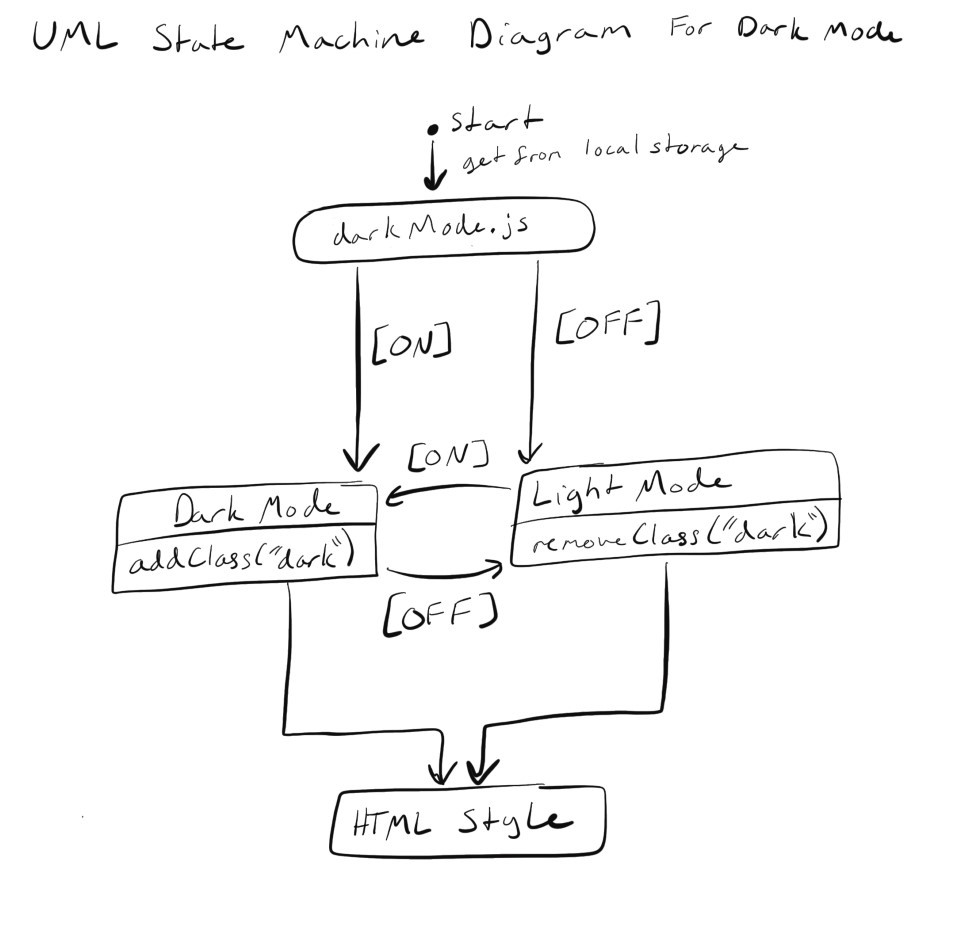 UML State Machine Diagram For Dark Mode
start
get from local storage
darkMode.js
[ON]
[OFF]
[ON]
Dark Mode
addClass("dark")
Light Mode
removeClass("dark")
[OFF]
HTML Style